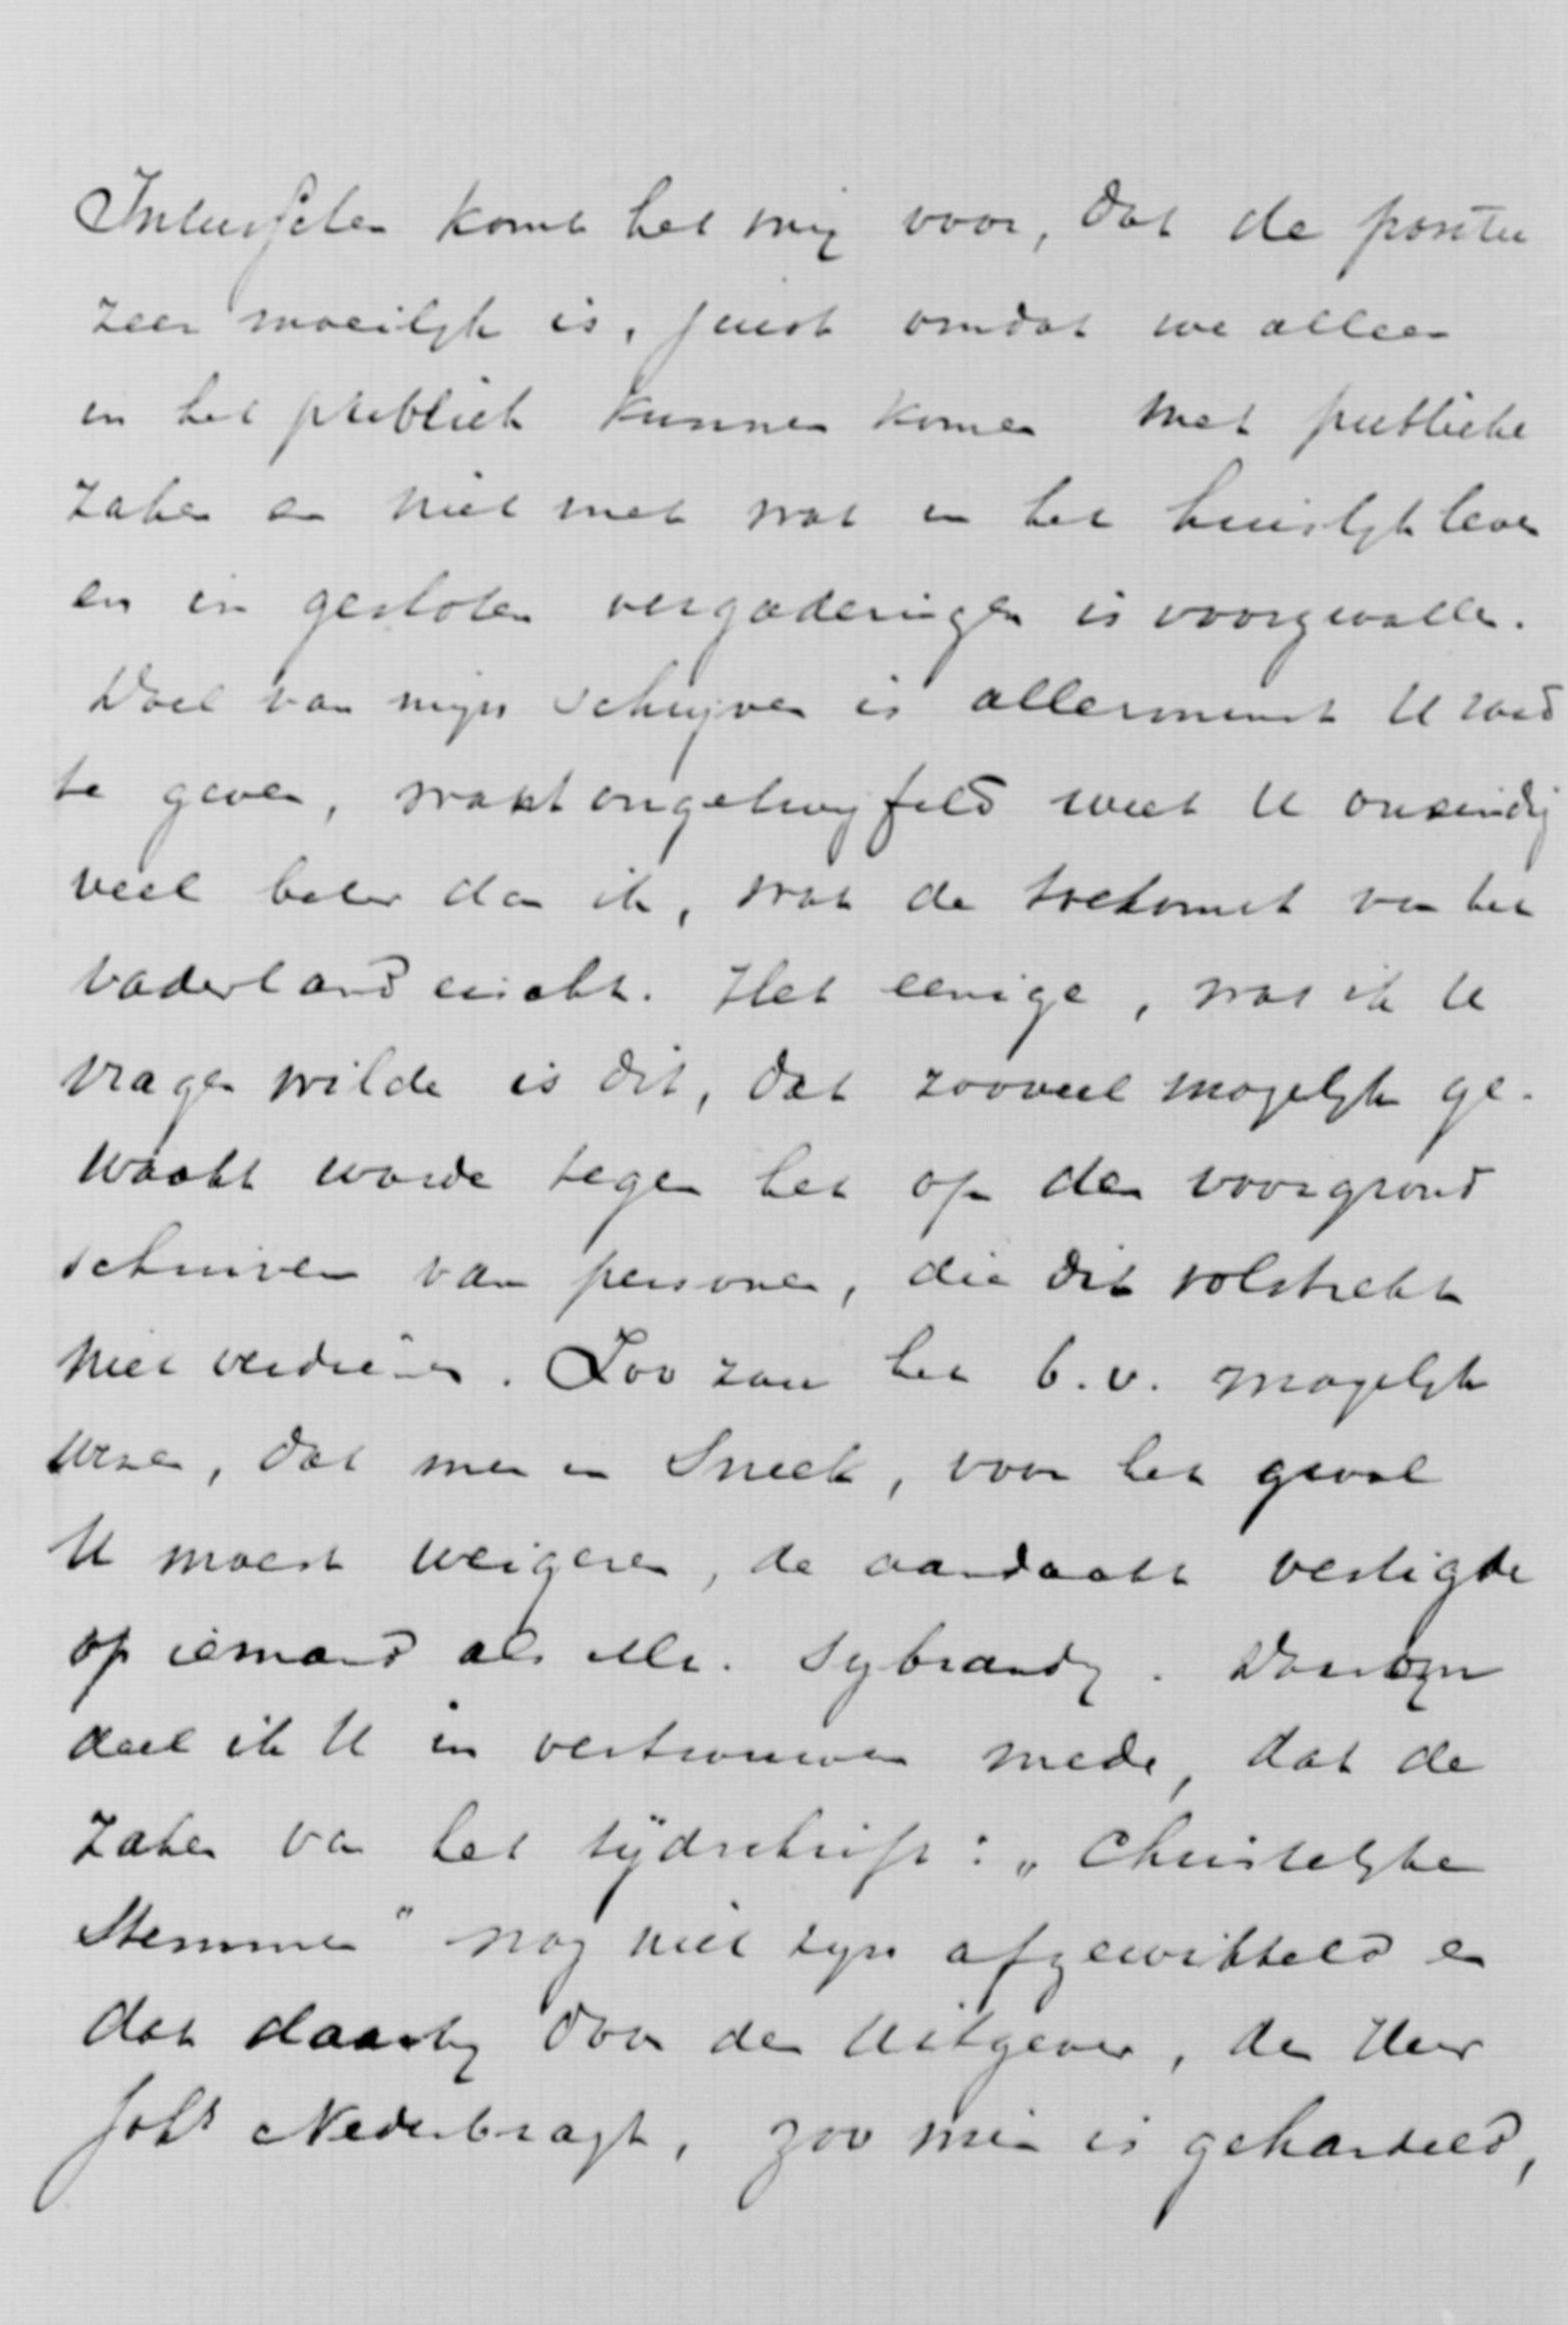 Intusschen komt het mij voor, dat de positie
zeer moeilijk is, juist omdat we alleen
in het publiek kunnen komen met publieke
zaken en niet met wat in het huislijk leven
en in gesloten vergaderingen is voorgevallen.
Doel van mijn schrijven is allerminst U raad
te geven, want ongetwijfeld weet U oneindig
veel beter dan ik, wat de toekomst van het
vaderland eischt. Het eenige, wat ik U
vragen wilde is dit, dat zooveel mogelijk ge-
waakt worde tegen het op den voorgrond
schuiven van personen, die dit volstrekt
niet verdienen. Zoo zou het b.v. mogelijk
wezen, dat men in Sneek, voor het geval
U moest weigeren, de aandacht vestigde
op iemand als Mr. Sybrandy. Daarbij
deel ik U in vertrouwen mede, dat de
zaken van het tijdschrift: „Christelijke
Stemmen" nog niet zijn afgewikkeld en
dat daarbij door den Uitgever, den Heer
Johs Nederbragt, zoo min is gehandeld,